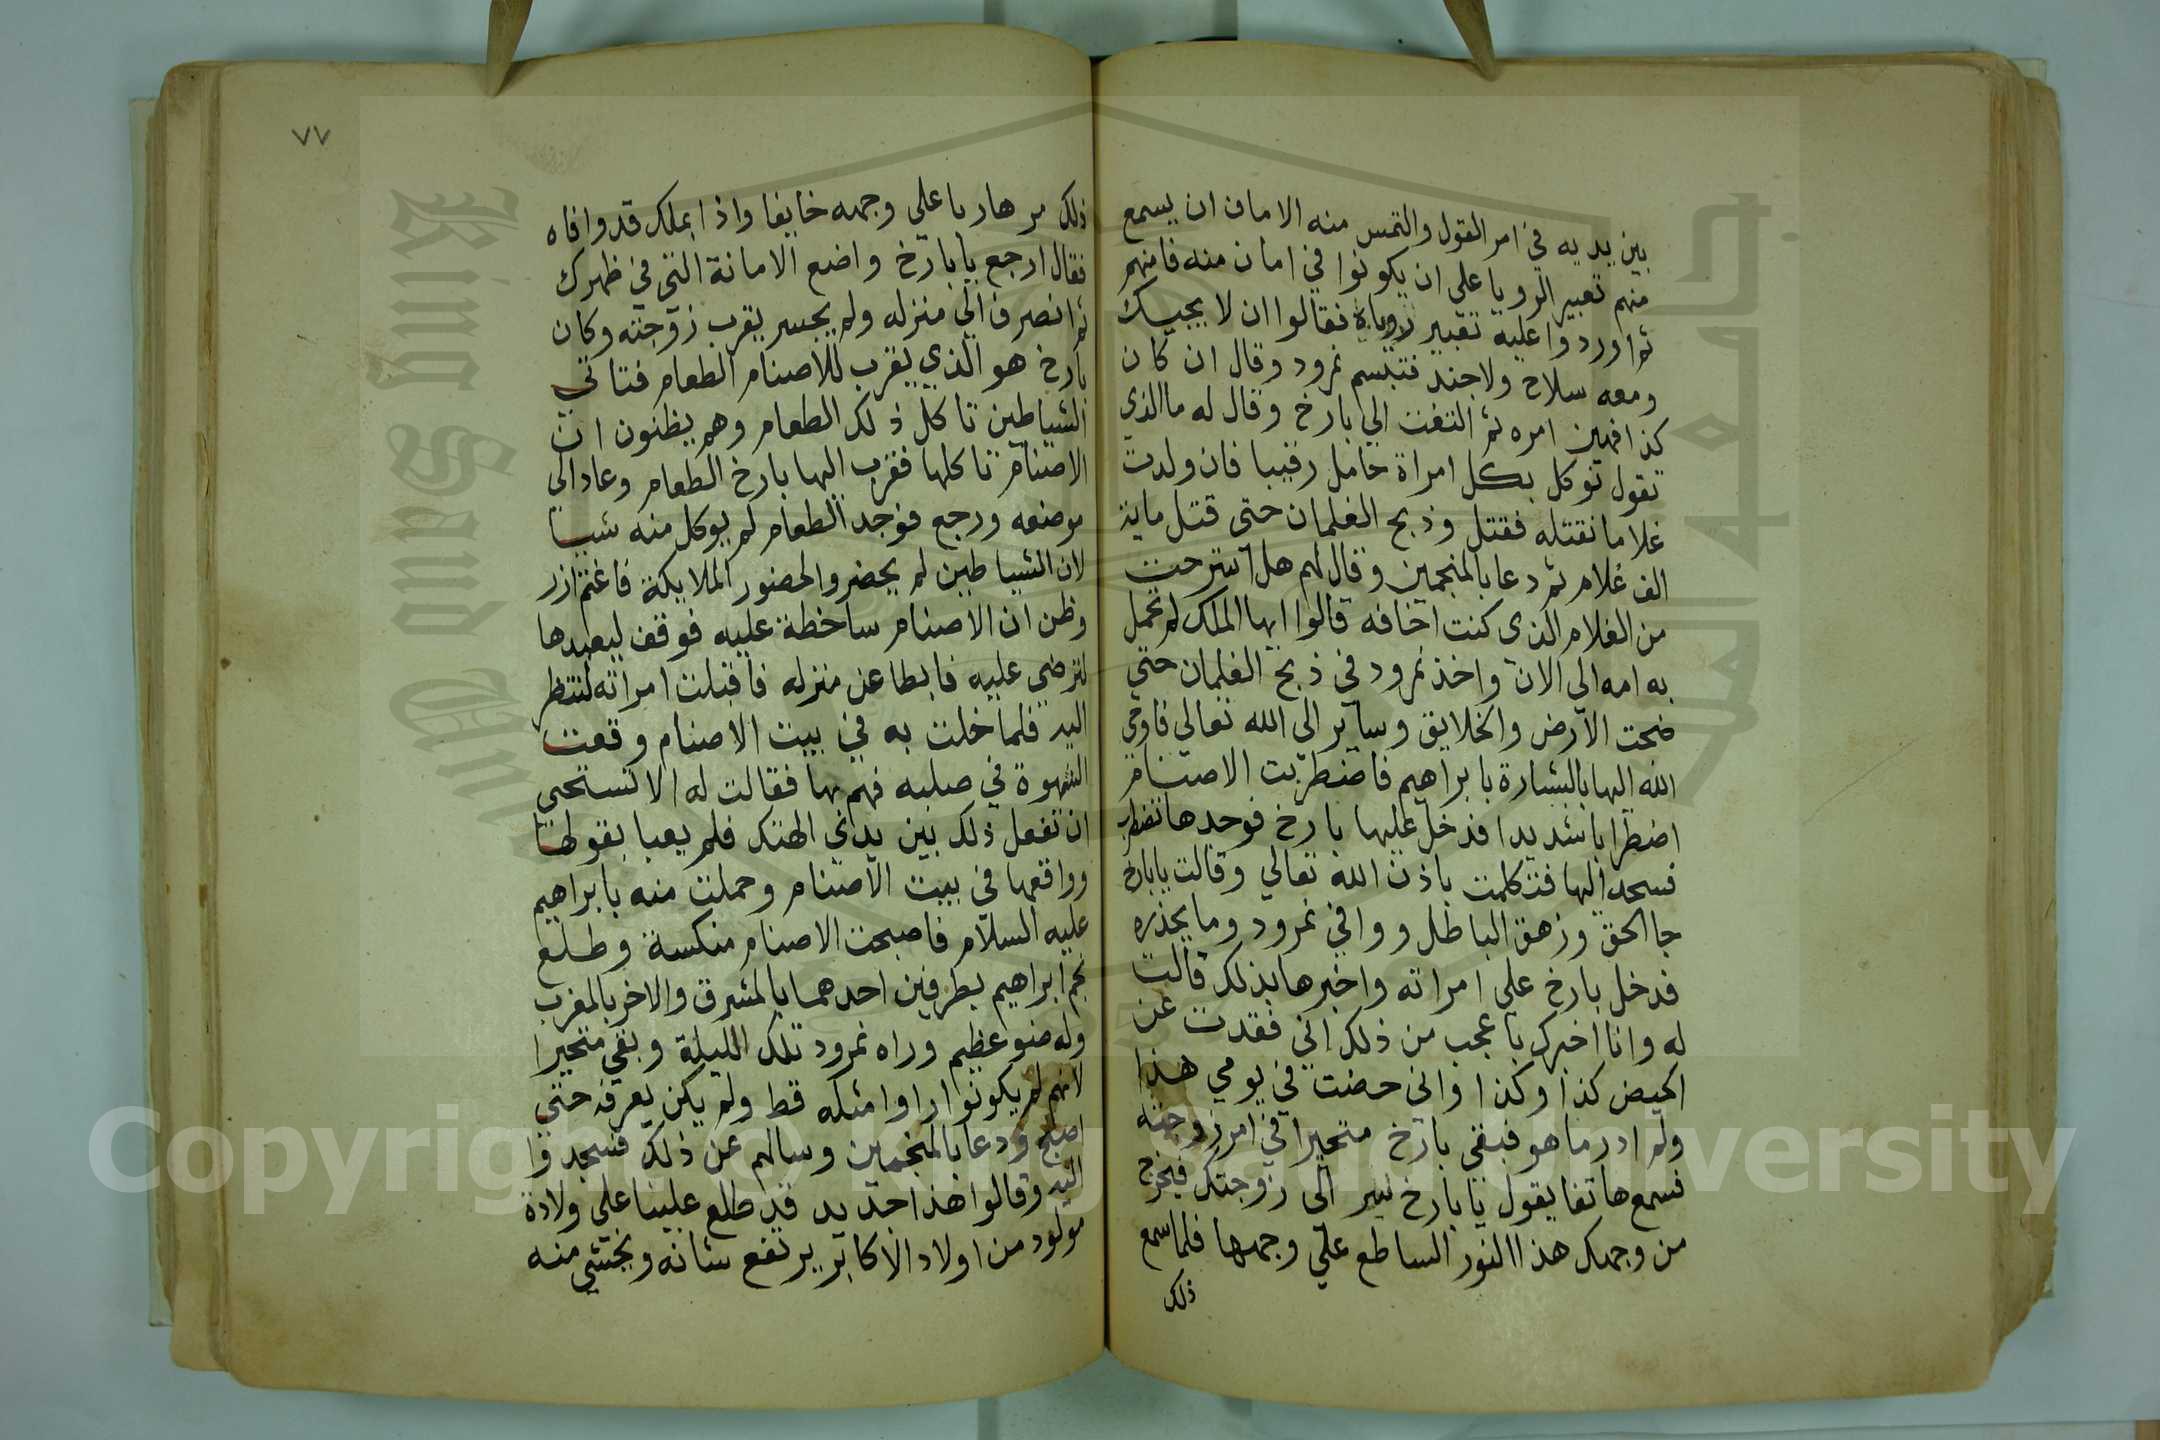 بين يديه في امر القول والتمس منه الامان ان يسمع
منهم تعبير الرويا علي ان يكونوا في امان منه فامنهم
ثم اوردوا عليه تعبير روياه فقالوا ان لا يجيك
ومعه سلاح ولا جند فتبسم نمرود وقال ان كان
كذا فهين امره ثم التفت الي بارخ وقال له ما الذي
تقول توكل بكل امراة حامل رقيبا فان ولدت
غلاما نقتله فقتل وذبح الغلمان حتي قتل ماية
الف غلام ثم دعا بالمنجمين وقال لهم هل استرحت
من الغلام الذي كنت اخافه قالوا ايها الملك لم تحمل
به امه الي الان واخذ نمرود في ذبح الغلمان حتي
ضجت الارض والخلايق وساير الي الله تعالي فاوحي
الله اليها بالبشارة بابراهيم فاضطربت الاصنام
اضطرابا شديدا فدخل عليها بارخ فوجدها تضطرب
فسجد اليها فتكلمت باذن الله تعالي وقالت يا بارخ
جا الحق وزهق الباطل ووافي نمرود وما يحذره
فدخل بارخ علي امراته واخبرها بذلك قالت
له وانا اخبرك باعجب من ذلك اني فقدت عن
الحيض كذا وكذا واني حضت في يومي هذا
ولم ادر ما هو فبقي بارخ متحيرا في امر زوجته
فسمع هاتفا يقول يا بارخ سر الي زوجتك فيخرج
من وجهك هذا النور الساطع علي وجهها فلما سمع
ذلك
٧٧
ذلك مر هاربا علي وجهه خايفا واذا بملك قد وافاه
فقال ارجع يا بارخ واضع الامانة التي في ظهرك
ثم انصرف الي منزله ولم يجسر يقرب زوجته وكان
بارخ هو الذي يقرب للاصنام الطعام فتاتي
الشياطين تاكل ذلك الطعام وهم يظنون ان
الاصنام تاكلها فقرب اليها بارخ الطعام وعاد الي
موضعه ورجع فوجد الطعام لم يوكل منه شيا
لان الشياطين لم يحضروا لحضور الملايكة فاغتم ازر
وظن ان الاصنام ساخطة عليه فوقف ليعبدها
لترضي عليه فابطا عن منزله فاقبلت امراته لتنظر
اليه فلما خلت به في بيت الاصنام وقعت
الشهوة في صلبه فهم بها فقالت له الا تستحي
ان تفعل ذلك بين يدي الهتك فلم يعبا بقولها
وواقعها في بيت الاصنام وحملت منه بابراهيم
عليه السلام فاصبحت الاصنام منكسة وطلع
نجم ابراهيم بطرفين احدهما بالمشرق والاخر بالمغرب
وله ضو عظيم وراه نمرود تلك الليلة وبقي متحيرا
لانهم لم يكونوا راوا مثله قط ولم يكن يعرفه حتي
اصبح ودعا بالمنجمين وسالهم عن ذلك فسجدوا
اليه وقالوا هذا جديد قد طلع علينا علي ولادة
مولود من اولاد الاكابر يرتفع شانه ويخشي منه
Copyright © King Saud University
King Saud University
جامعة الملك